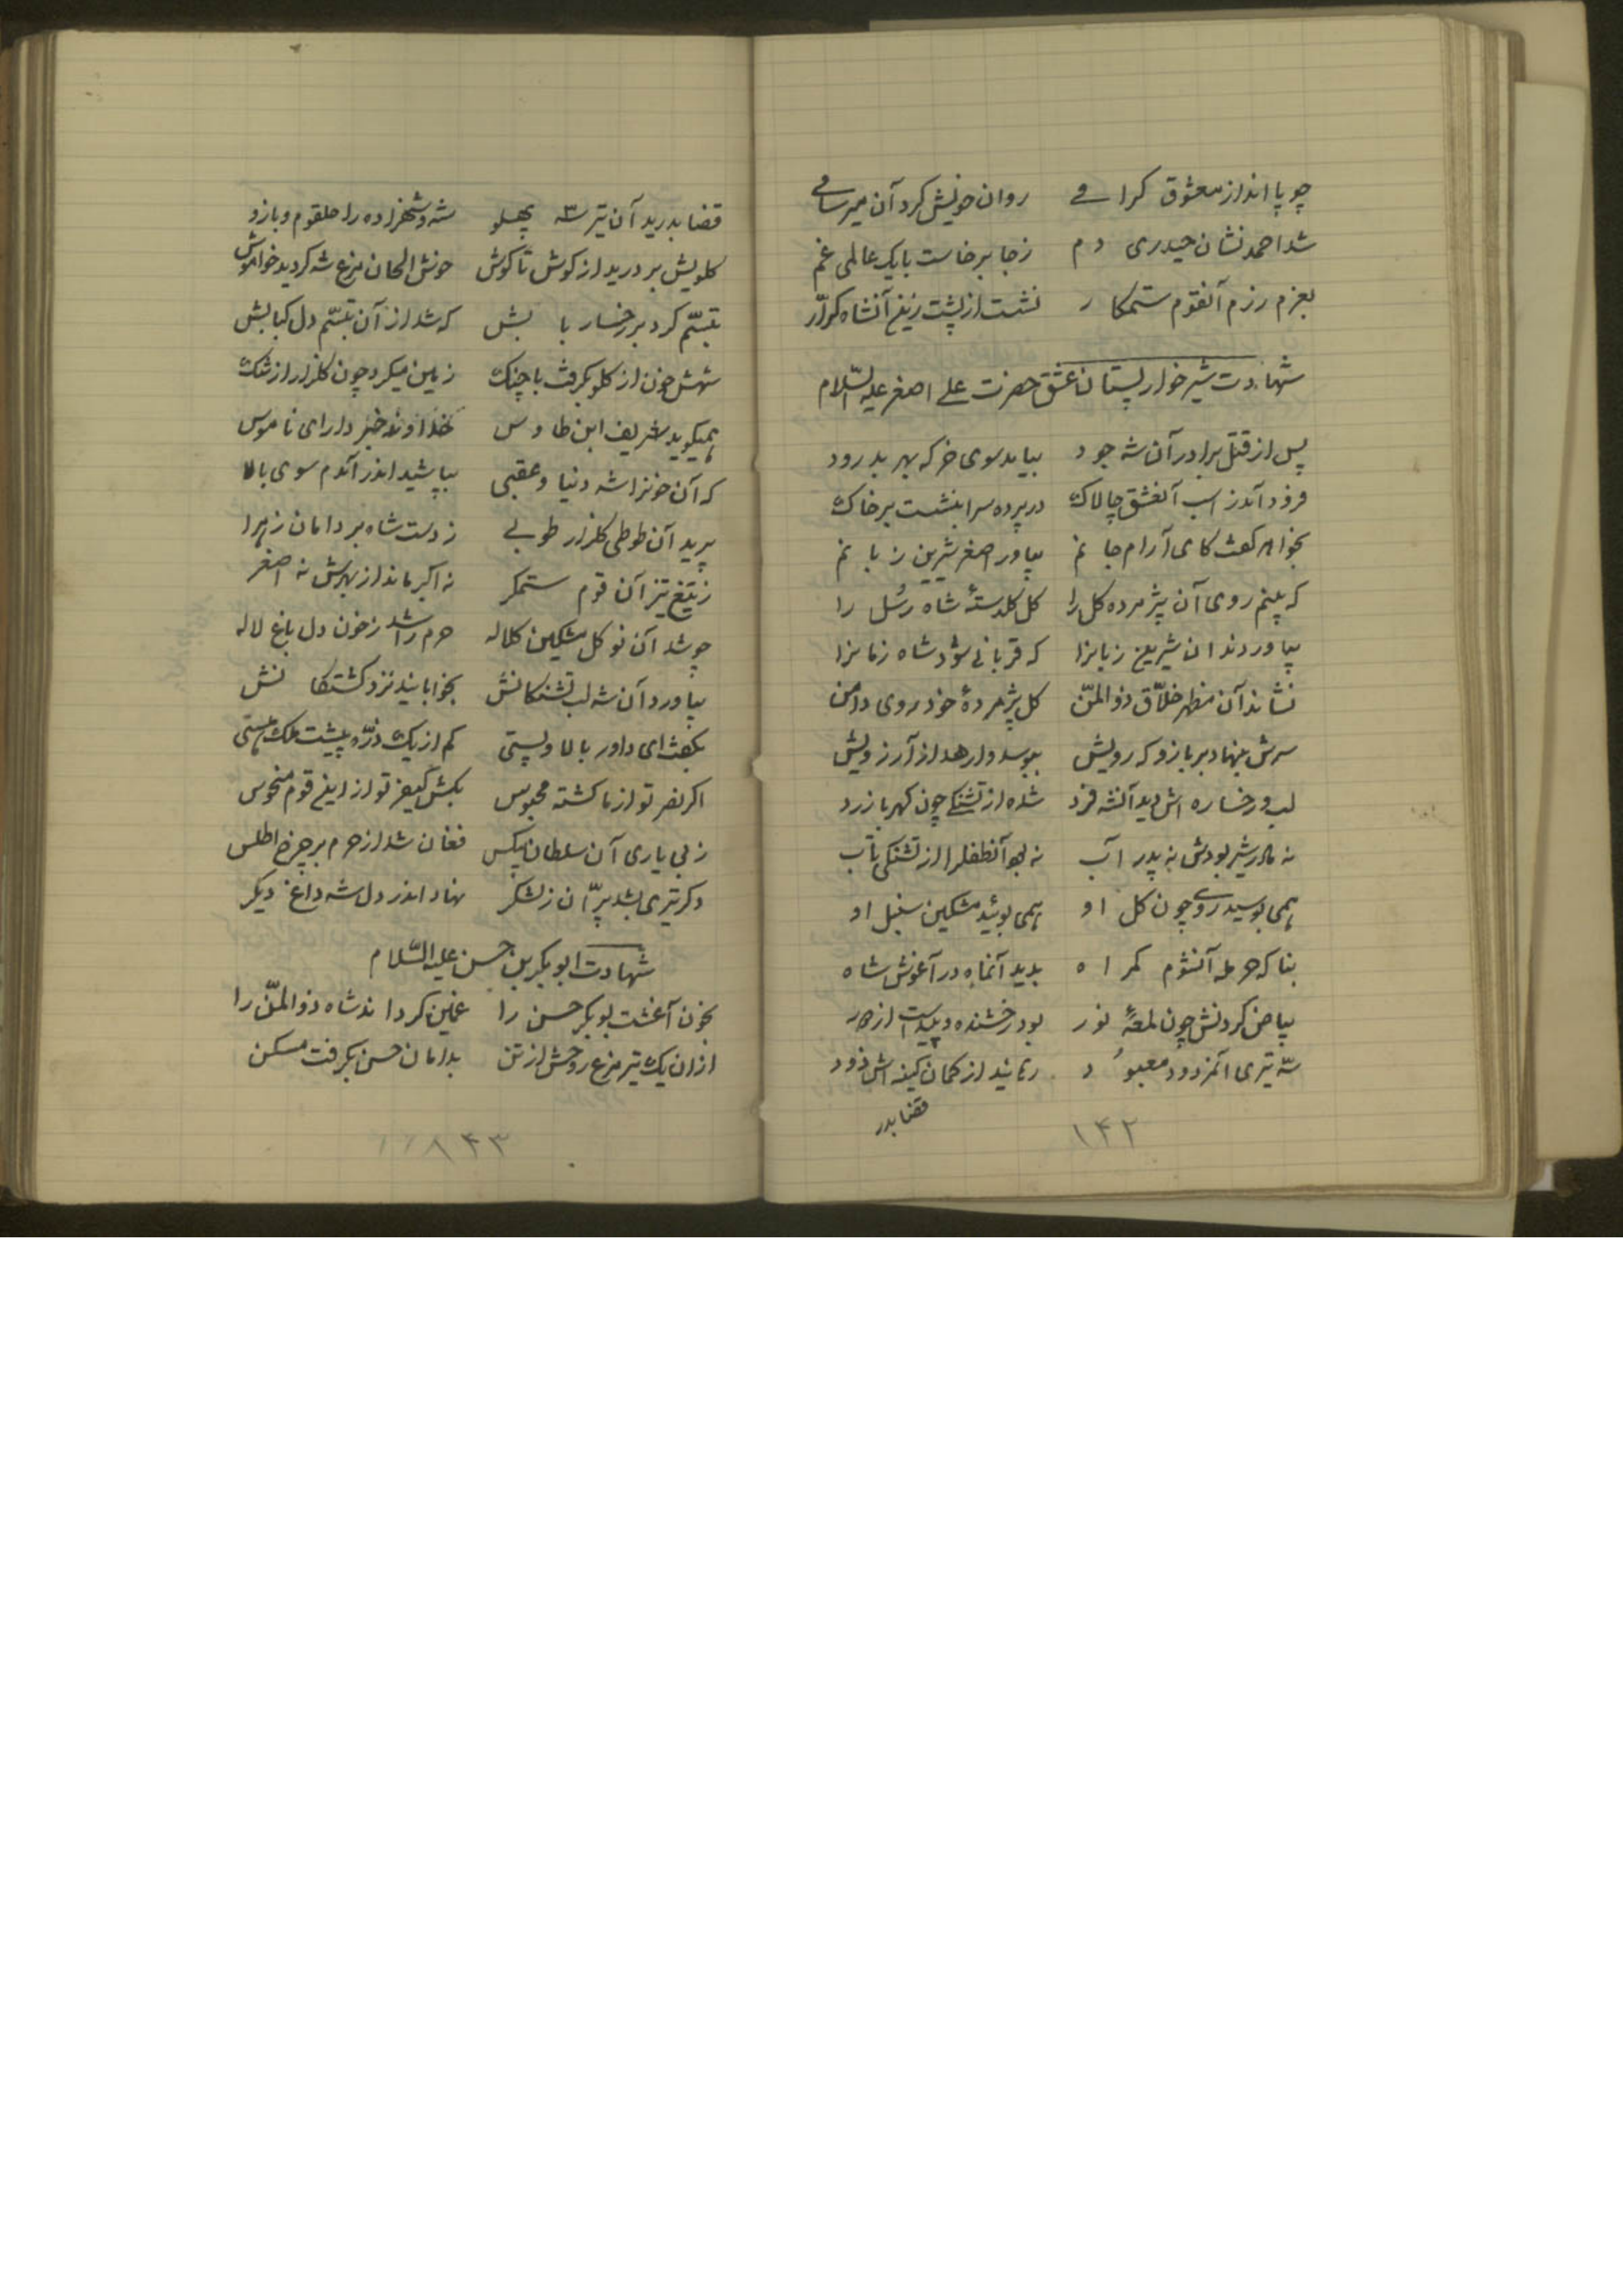 چو پا انداز معشوق کرامے روان خویش کرد آن میر سامے
شد احمد نشان حیدری دم زجا برخاست با یک عالمی غم
بعزم رزم آنقوم ستمکار نشست از پشت زین آنشاه کرّار
شهادت شیرخوار پستان عشق حضرت علے اصغر علیه السّلام
پس از قتل برادر آن شه جود بیامد سوی خرکه بهر بدرود
فرود آمد ز اسب آنعشق چالاک در پرده سرا بنشست بر خاک
بخواهر کفت کای آرام جانم بیاور اصغر شیرین زبانم
که بینم روی آن پژمرده کل را کل کلدستهٔ شاه رسُل را
بیاوردند ان شیرین زبانرا که قربانی شود شاه زمانرا
نشاند آن مظهر خلّاق ذوالمنّ کل پژمردهٔ خود روی دامن
سرش بنهاد بر بازو که رویش ببوسد وارهد از آرزویش
لب و رخساره اش دید آنشه فرد شده از تشنکے چون کهربا زرد
نه مادر شیر بودش نه پدر آب نه بود آنطفلرا از تشنکی تاب
همی بوسید روے چون کل او همی بوئید مشکین سنبل او
بناکه حرمله آنشوم کمراه بدید آنماه در آغوش شاه
بیاض کردنش چون لمعهٔ نور بود رخشنده و پیداست از دور
سّه تیری آنمزدود معبوُد رهانید از کمان کینه اش زود
قضا بدر
۱۴۲
قضا بدرید آن تیر سه پهلو شه و شهزاده را حلقوم و بازو
کلویش بر درید از کوش تا کوش خوش الحان مرغ شه کردید خواموش
تبسّم کرد بر رخسار بابش که شد از آن تبسّم دل کبابش
شهش خون از کلو بکرفت با چنک زمین میکرد چون کلزار از رنک
همیکوید شریف ابن طاوس خداوند خبر دارای ناموس
که آن خونرا شه دنیا و عقبی بپاشید اندر آندم سوی بالا
پرید آن طوطی کلزار طوبے ز دست شاه بر دامان زهرا
ز تیغ تیز آن قوم ستمکر نه اکبر ماند از بهرش نه اصغر
چو شد آن نوکل مشکین کلاله حرم را شد ز خون دل باغ لاله
بیاورد آن شه لب تشنکانش بخوابانید نزد کشتکانش
بکفت ای داور بالا و پستی کم از یک ذرّه پیشت ملک هستی
اکر نصر تو از ما کشته محبوس بکش کیفر تو از این قوم منحوس
ز بی یاری آن سلطان بیکس فغان شد از حرم بر چرخ اطلس
دکر تیری بشد پرّان ز لشکر نهاد اندر دل شه داغ دیکر
شهادت ابوبکر بن حسن علیه السّلام
بخون آغشت بوبکر حسن را غمین کرداند شاه ذوالمنّ را
از ان یک تیر مرغ روحش از تن بدامان حسن بکرفت مسکن
۱۴۳